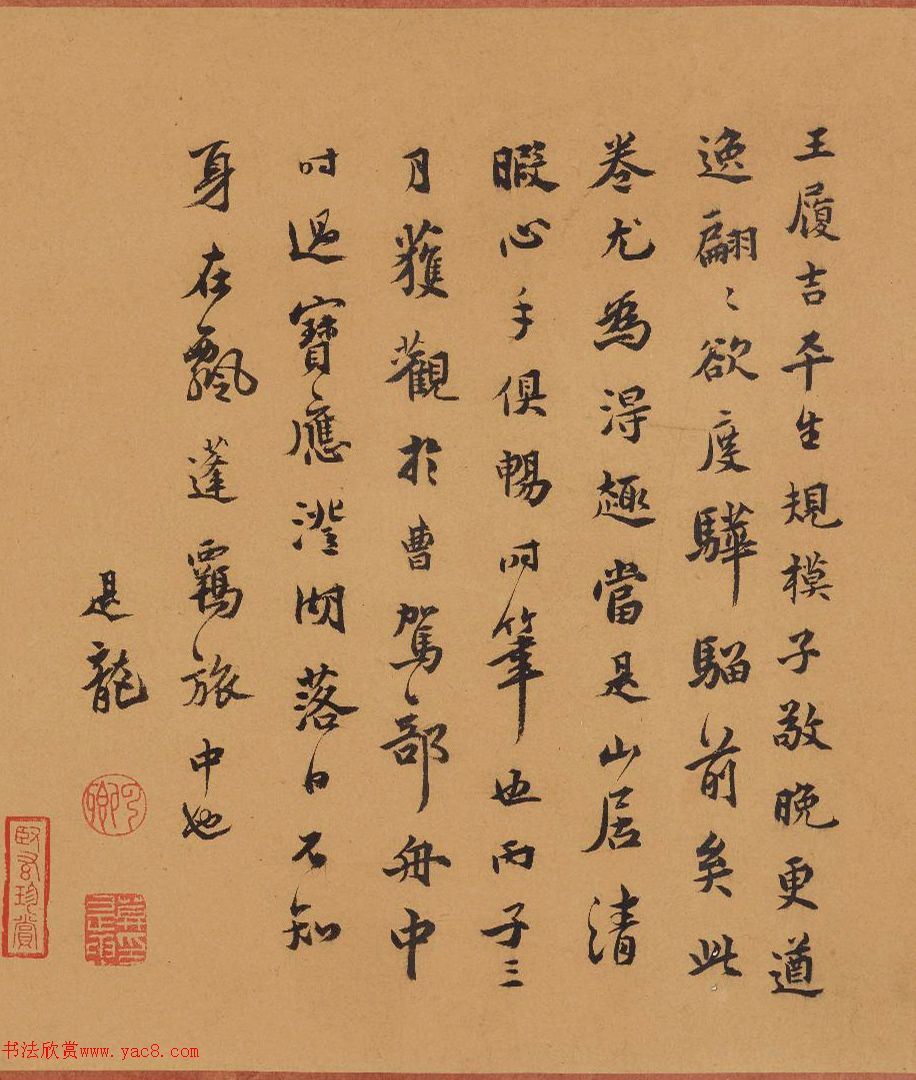 王履吉平生規模子敬晚更遒
逸翩〻欲度驊騮前矣此
卷尤為得趣當是山居清
暇心手俱暢時筆也丙子三
月獲觀於曹駕部舟中
時過寶應澄湖落日不知
身在飄蓬羈旅中也
是龍
臥雲珍賞
书法欣赏www.yac8.com